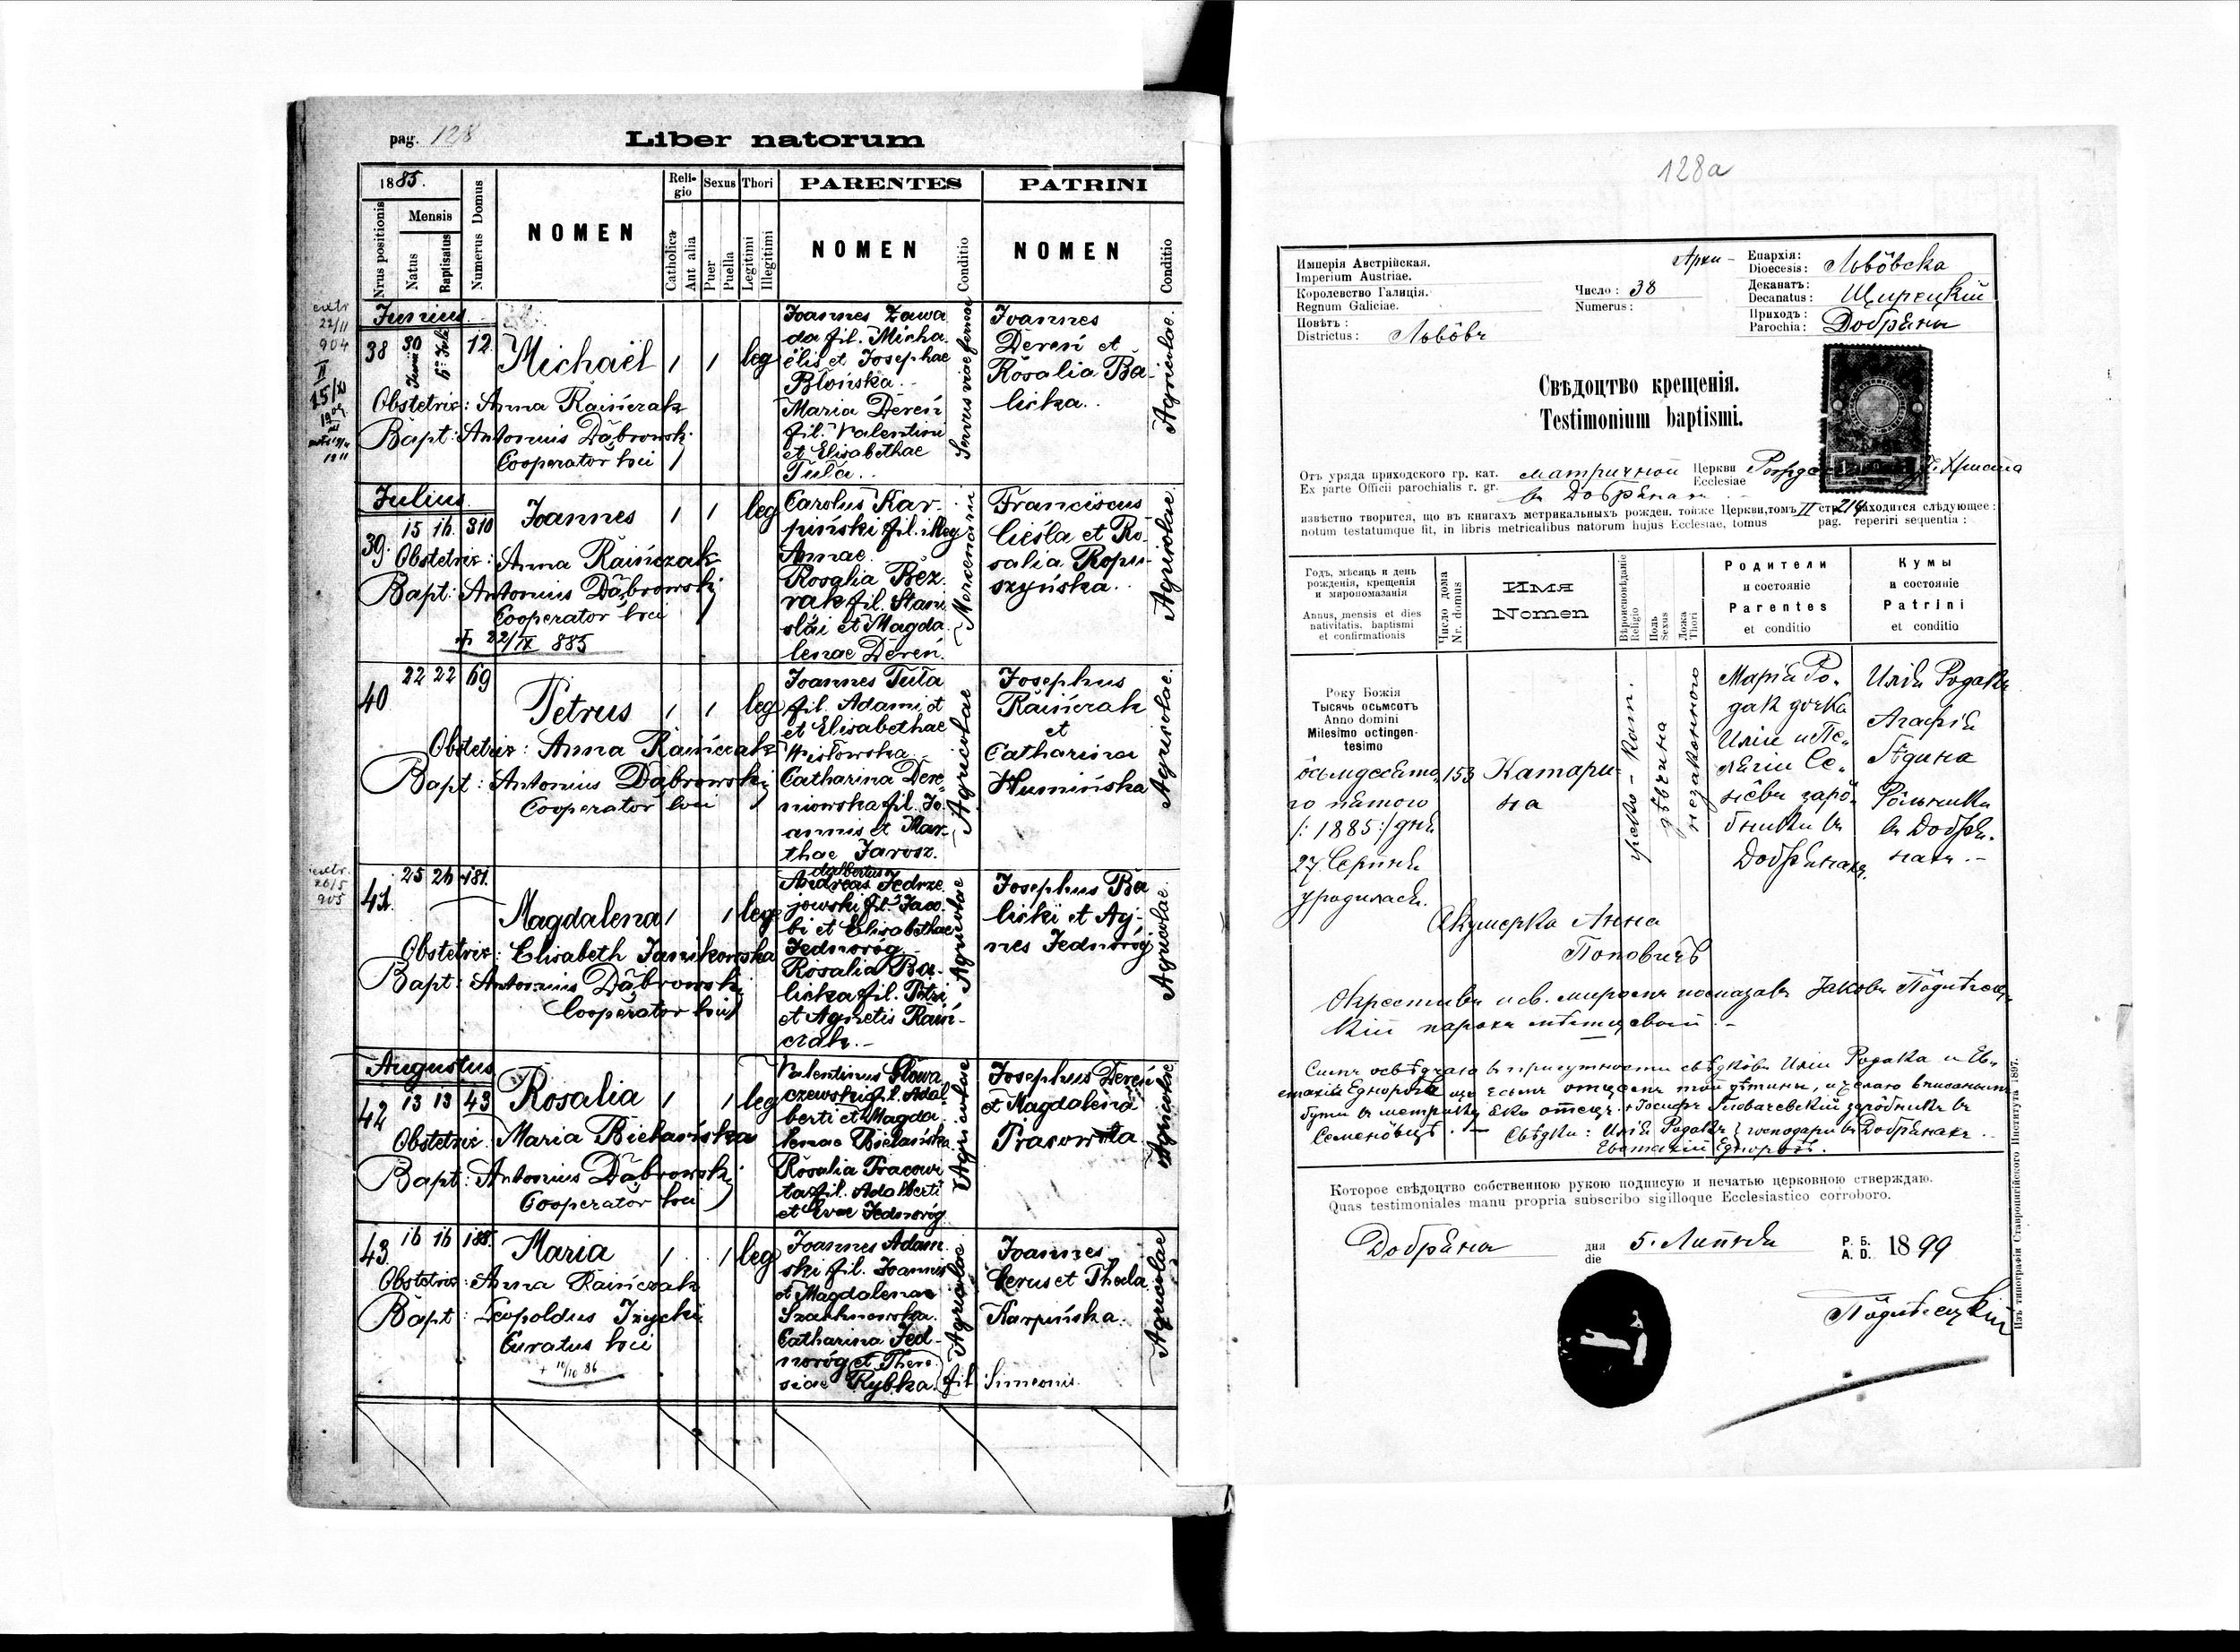 pag. 128
Liber natorum
1885.
Nrus positionis
Mensis
Natus
Baptisatus
Numerus Domus
NOMEN
Religio
Catholica
Aut alia
Sexus
Puer
Puella
Thori
Legitimi
Illegitimi
PARENTES
NOMEN
Conditio
PATRINI
NOMEN
Conditio
extr
22/11
904
II
Junius
38 30 Junii 6ta Julii 12 Michaël 1 1 leg
Obstetrix: Anna Raińczak
Bapt: Antonius Dąbrowski
Cooperator loci
Joannes Zawa
da fil. Micha
ëlis et Josephae
Błońska.
Maria Dereń
fil. Valentini
et Elisabethae
Tuła.
Joannes
Dereń et
Rosalia Ba-
licka.
Agricolae.
Julius
39. 15 16 310 Joannes 1 1 leg
Obstetrix: Anna Raińczak
Bapt: Antonius Dąbrowski
Cooperator loci
+ 22/IX 885
Carolus Kar-
piński fil. illeg
Annae
Rosalia Bez
rak fil. Stani
slai et Magda
lenae Dereń.
Mercenarii
Franciscus
Cieśla et Ro-
salia Ropu-
szyńska.
Agricolae.
40 22 22 69 Petrus 1 1 leg
Obstetrix: Anna Raińczak
Bapt: Antonius Dąbrowski
Cooperator loci
Joannes Tuła
fil. Adami et
et Elisabethae
Wisłowska
Catharina Dere
niowska fil. Jo
annis et Mar-
thae Jarosz.
Agricolae
Josephus
Raińczak
et
Catharina
Humińska
Agricolae.
extr.
26/5
905
41. 25 26 181. Magdalena 1 1 leg
Obstetrix: Elisabeth Janikowska
Bapt: Antonius Dąbrowski
Cooperator loci
Andreas Jedrze
jowski fil. Jaco
bi et Elisabethae
Jednoróg
Rosalia Ba-
licka fil. Petri
et Agnetis Raiń-
czak.-
Agricolae
Josephus Ba
licki et Ag-
nes Jednoróg
Agricolae.
Augustus
42 13 13 43 Rosalia 1 1 leg
Obstetrix: Maria Bielańska
Bapt: Antonius Dąbrowski
Cooperator loci
Valentinus Głowa
czewski fil. Adal
berti et Magda
lenae Bielańska
Rosalia Pracowi
ta fil. Adalberti
et Evae Jednoróg
Agricolae
Josephus Dereń
et Magdalena
Pracowita
Agricolae
43. 16 16 188. Maria 1 1 leg
Obstetrix: Anna Raińczak
Bapt: Leopoldus Izycki
Curatus loci
+ 11/10 86
Joannes Adam
ski fil. Joannis
et Magdalenae
Catharina Jed-
noróg et There
siae Rybka. fil. Simeonis.
Agricolae
Joannes
Cerus et Thecla
Karpińska.
Agricolae
128a
Имперія Австрійская.
Imperium Austriae.
Королевство Галиція.
Regnum Galiciae.
Повѣтъ:
Districtus: Львовъ
Число: 38
Numerus:
Архи-
Епархія:
Dioecesis: Львôвска
Деканатъ:
Decanatus: Щирецкій
Приходъ:
Parochia: Добряны
Свѣдоцтво крещенія.
Testimonium baptismi.
Отъ уряда приходского гр. кат. матричнои Церкви
Ex parte Officii parochialis r. gr. Ecclesiae
въ Добрянахъ
извѣстно творится, що въ книгахъ метрикальныхъ рожден. тойже Церкви, томъ II стр. 214 находится слѣдующее:
notum testatumque fit, in libris metricalibus natorum hujus Ecclesiae, tomus pag. reperiri sequentia:
Годъ, мѣсяць и день
рожденія, крещенія
и миропомазанія
Annus, mensis et dies
nativitatis, baptismi
et confirmationis
Число дома
Nr. domus
ИМЯ
Nomen
Вѣроисповѣданіе
Religio
Полъ
Sexus
Ложа
Thori
Родители
и состояніе
Parentes
et conditio
Кумы
и состояніе
Patrini
et conditio
Року Божія
Тысячь осьмсотъ
Anno domini
Milesimo octingen-
tesimo
ôсьмдесято
го пятого
/: 1885 :/ дня
27 Серпня
уродилась.
153
Катари
на
греко-кат.
дѣвчина
незаконного
Марія Ро-
дак дочка
Иліи и Пе-
лагіи Се-
нѣвъ зарô-
бники въ
Добрянахъ.
Илія Родакъ
Агафія
Рôльники
въ Добря-
нахъ.-
Акушерка Анна
Поповичъ
Окрестивъ и св. миромъ помазавъ Яковъ Пôдлѣсец-
кій парохъ мѣстцевый.-
Которое свѣдоцтво собственною рукою подписую и печатью церковною стверждаю.
Quas testimoniales manu propria subscribo sigilloque Ecclesiastico corroboro.
Добряны дня 5. Липня Р. Б. 1899
die A. D.
Изъ типографіи Ставропигійского Института 1897.